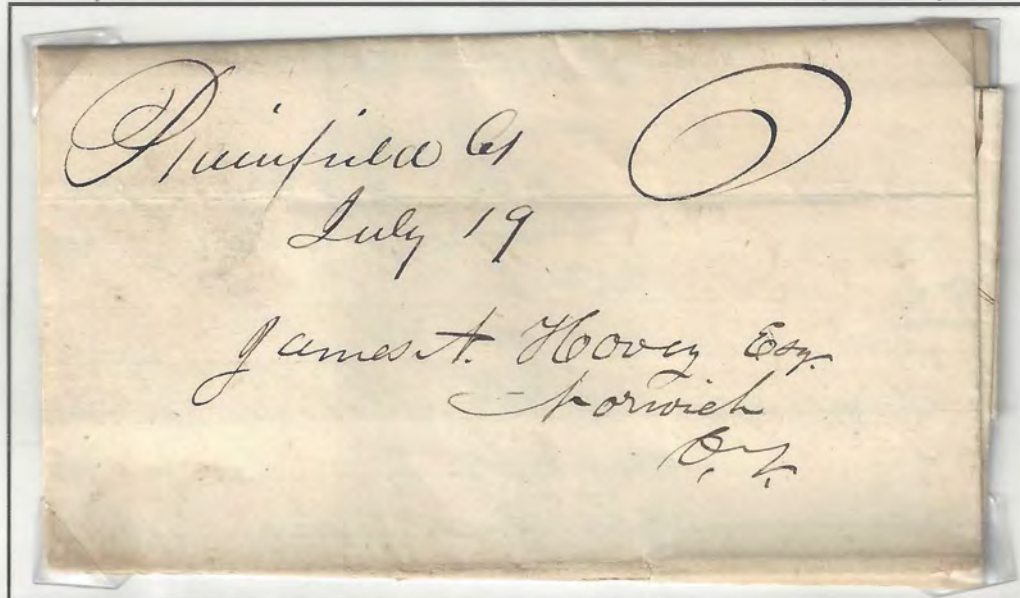 Plainfield Ct
July 19
James A. Hovey Esq.
Norwich
C.T.